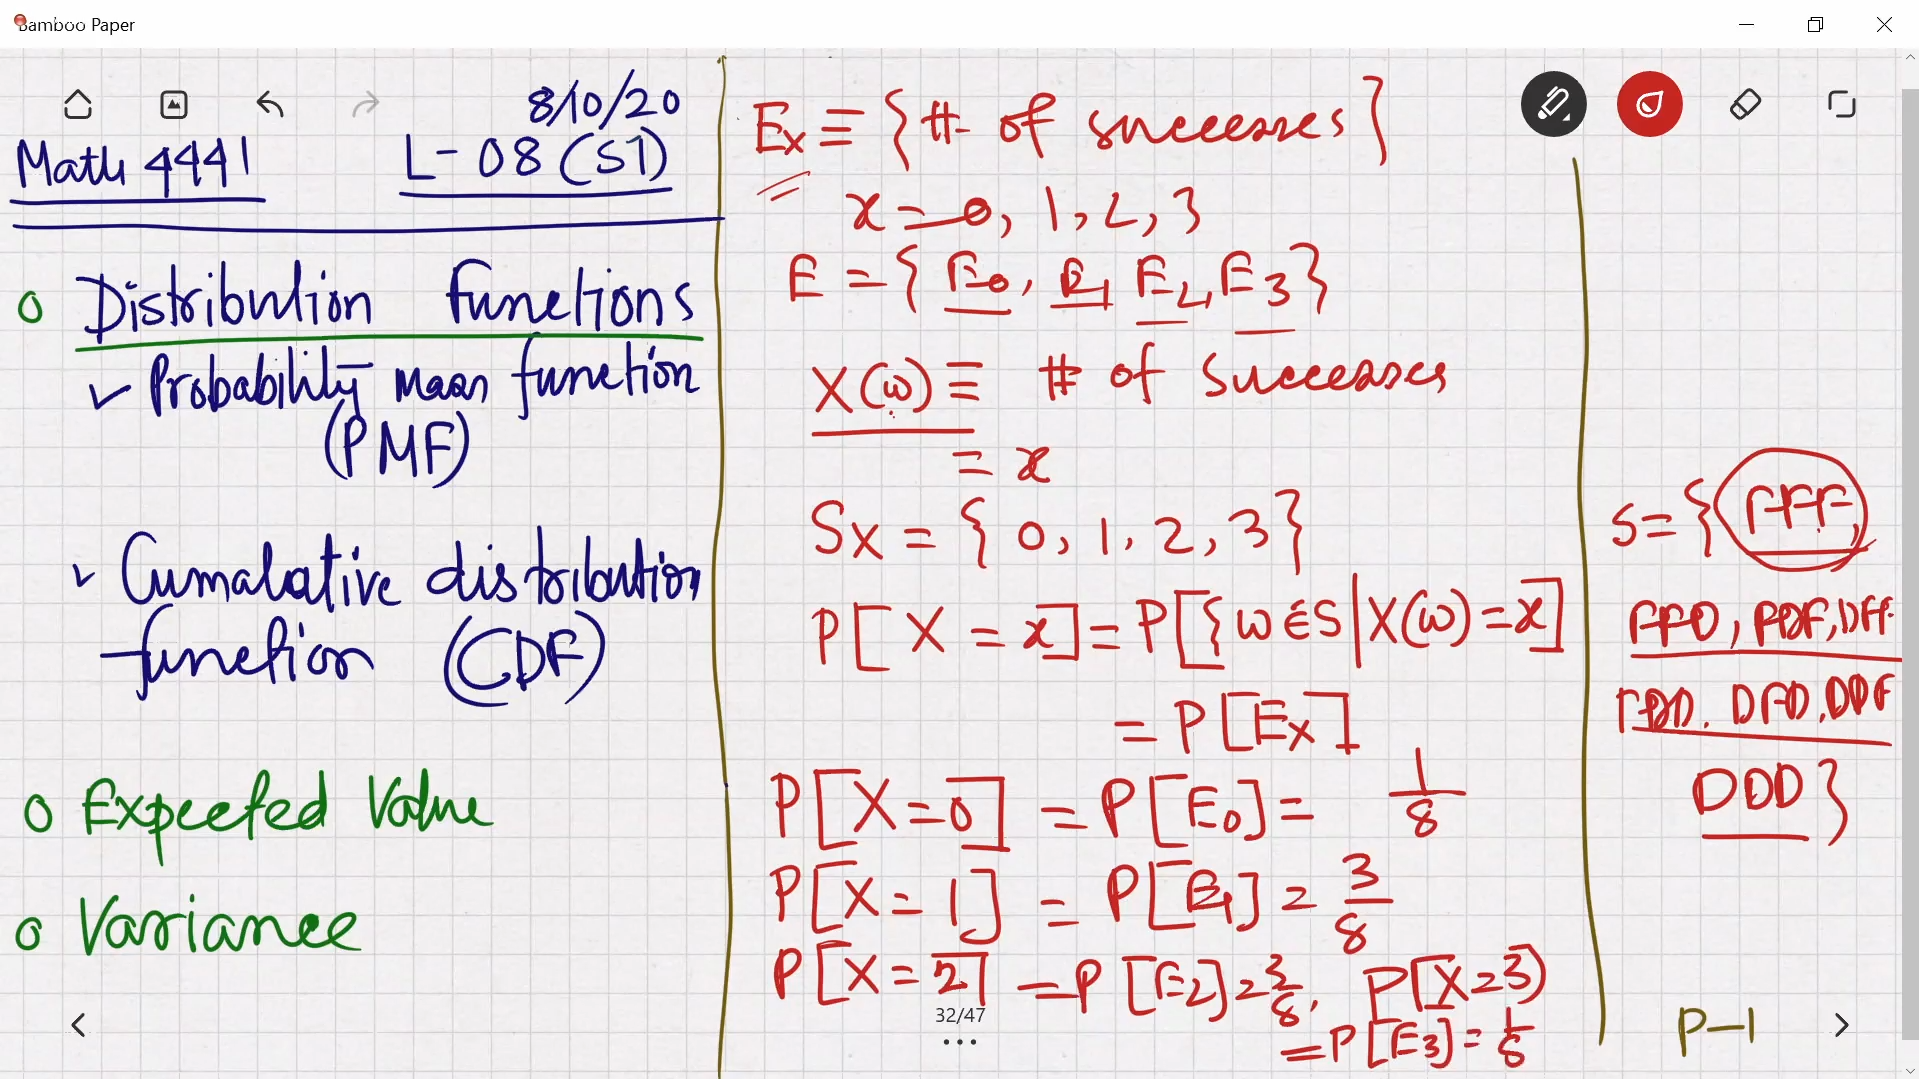 Bamboo Paper
8/10/20
Math 4441 L-08 (S1)
o Distribution functions
✓ Probability mass function
(PMF)
✓ Cumalative distribution
function (CDF)
o Expected Value
o Variance
Ex ≡ { # of successes }
x = 0, 1, 2, 3
E = { E0, E1, E2, E3 }
X(ω) ≡ # of successes
= x
Sx = { 0, 1, 2, 3 }
P[X = x] = P[{ω∈S | X(ω) = x]
= P[Ex]
P[X = 0] = P[E0] = 1/8
P[X = 1] = P[E1] = 3/8
P[X = 2] = P[E2] = 3/8, P[X=3)
= P[E3] = 1/8
S = { FFF,
FFD, FDF, DFF
FDD, DFD, DDF
DDD }
P-1
32/47